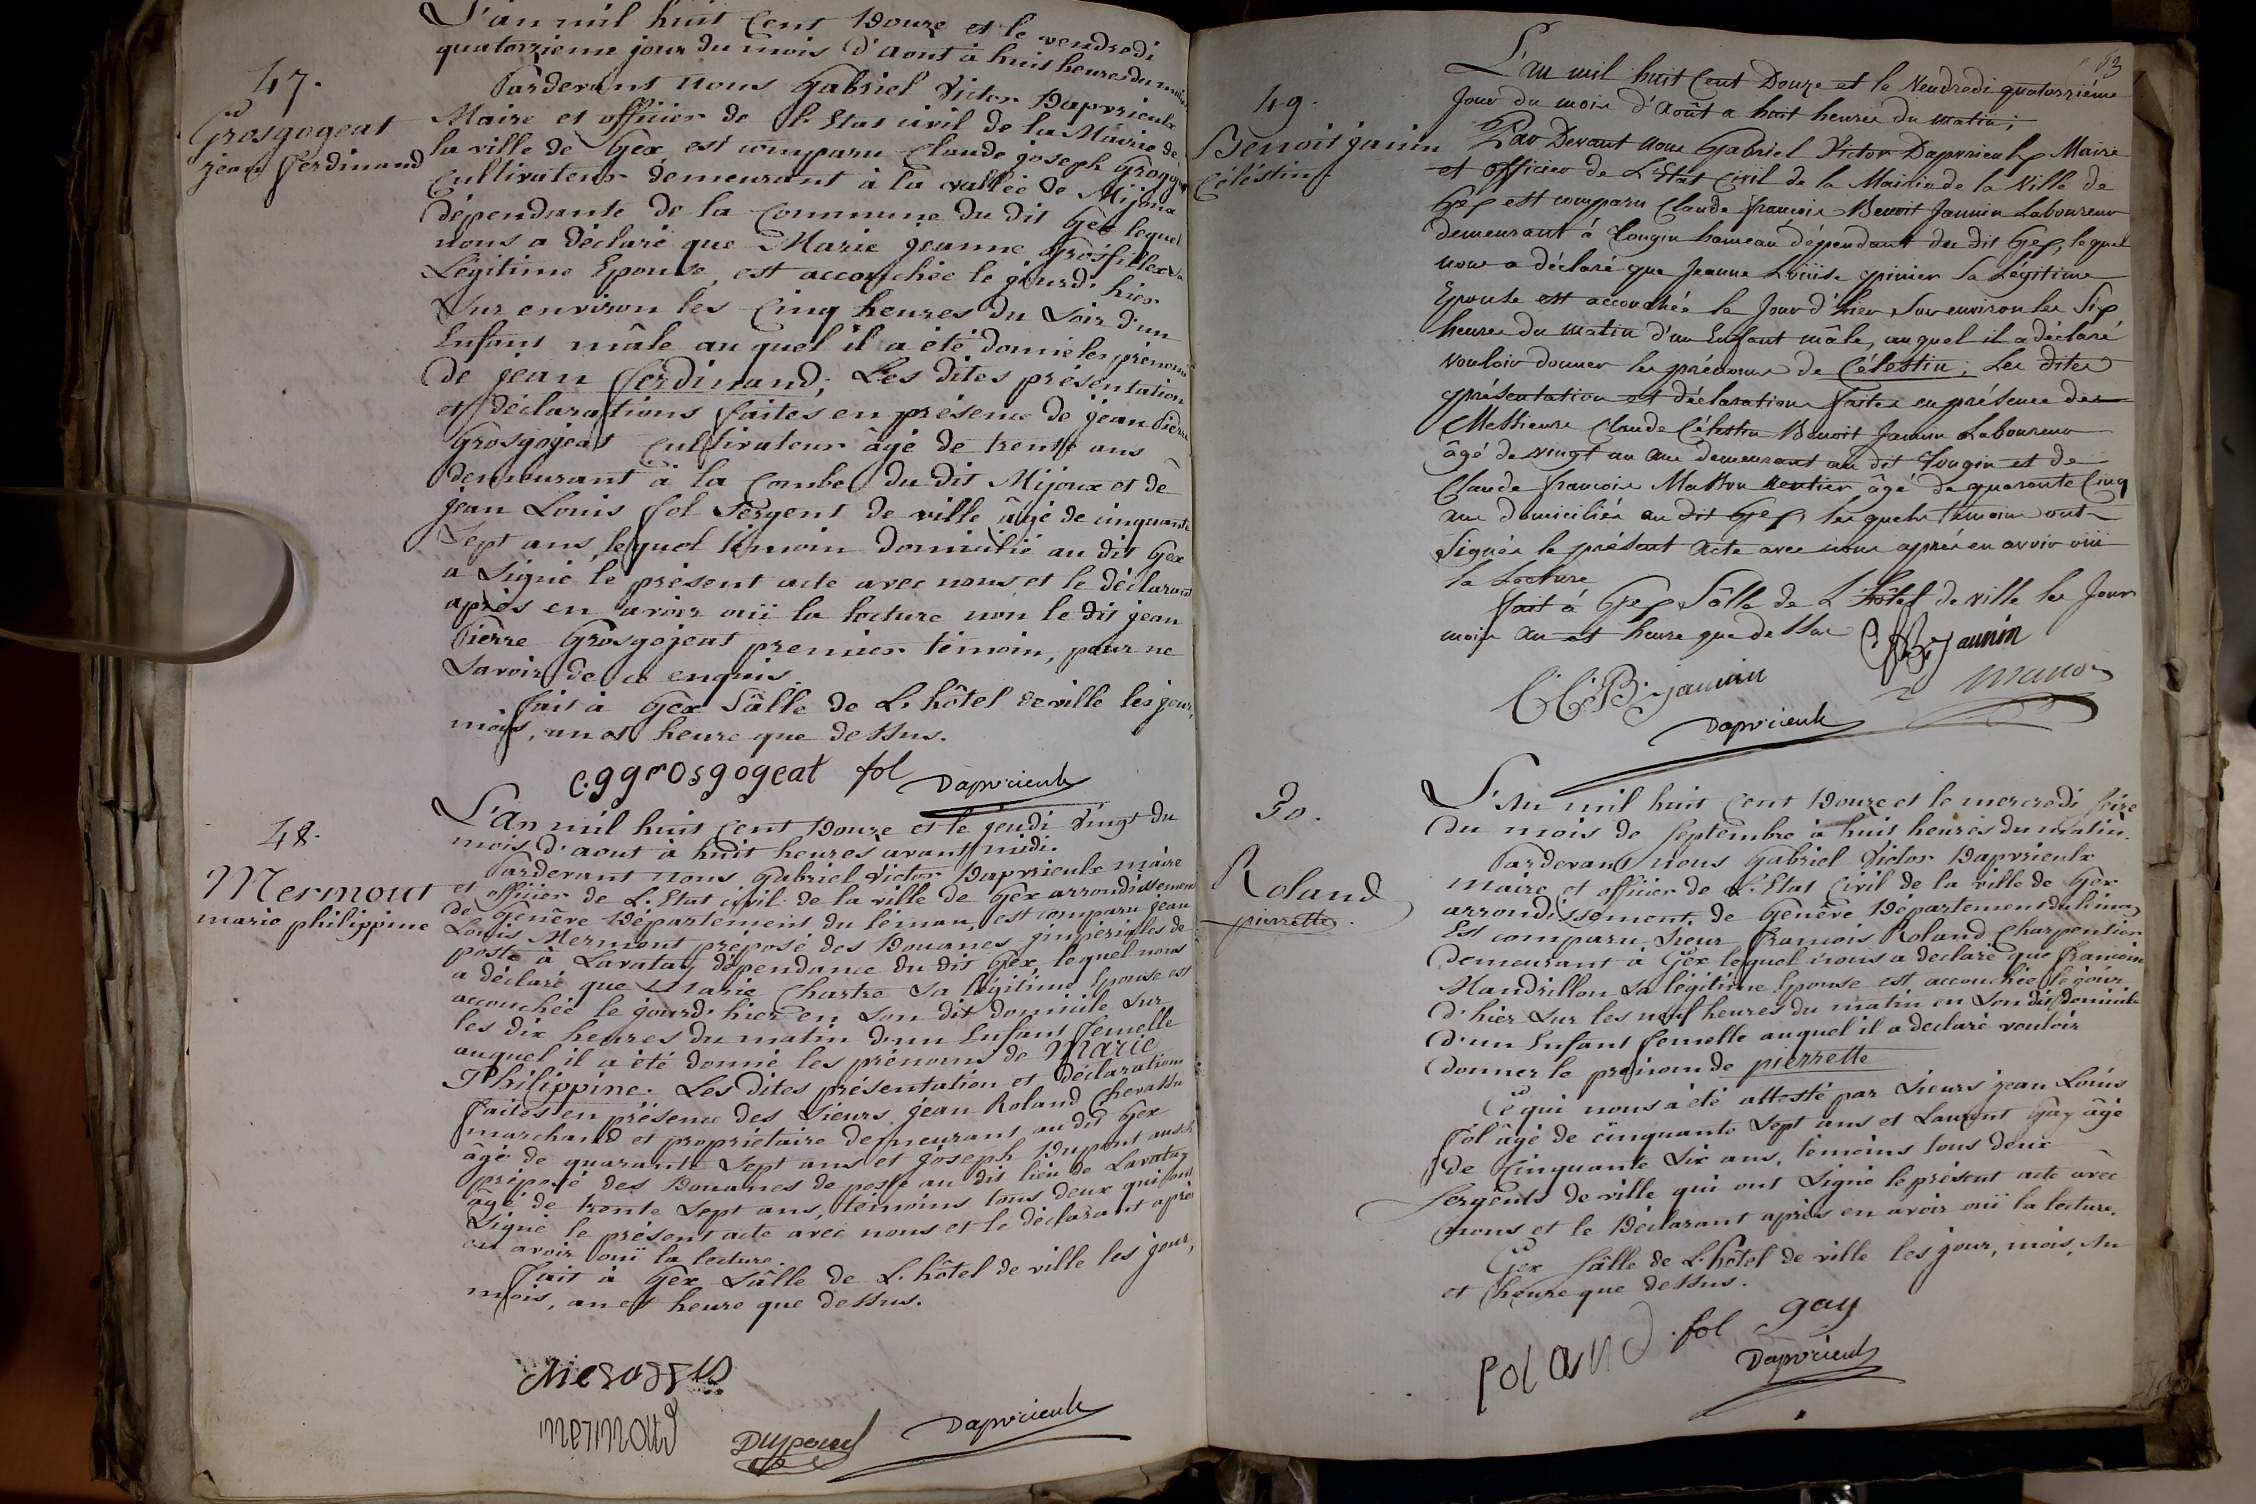 L'an mil huit Cent Douze et le vendredi
quatorzieme jour du mois d'aout à huit heures du matin
47.
Grosgogeat
jean ferdinand
Pardevant nous Gabriel Victor Dapvrieulx
Maire et officier de l'Etat civil de la Mairie de
la ville de Gex est comparu Claude joseph Grosgo
Cultivateur demeurant à la vallée de Mijoux
dépendante de la Commune du dit Gex lequel
nous a déclaré que Marie jeanne Grosfillex sa
Légitime Epouse, est accouchée le jourd'hier
Sur environ les Cinq heures du Soir d'un
Enfant mâle auquel il a été donné les prenoms
de jean ferdinand; Les dites présentation
et déclarations faites en présence de jean Pierre
Grosgojeat Cultivateur âgé de trente ans
demeurant à la Combe du dit Mijoux et de
jean Louis fol Sergent de ville âgé de cinquante
Sept ans, lequel témoin domicilié au dit Gex
a Signé le présent acte avec nous et le déclarant
après en avoir ouï la lecture non le dit jean
Pierre Grosgojeat premier témoin, pour ne
Savoir de ce enquis.
fait à Gex Sâlle de L'hôtel de ville les jour,
mois, an et heure que dessus.
C.g grosgogeat fol Dapvrieulx
48.
Mermout
marie philippine
L'an mil huit Cent Douze et le jeudi Vingt du
mois d'aout à huit heures avant midi.
Pardevant nous Gabriel Victor Dapvrieulx maire
et officier de L'Etat civil de la ville de Gex arrondissement
de Genève Département du léman, est comparu jean
Louis Mermont préposé des Douanes jmpériales de
poste à Lavatay dépendance du dit Gex, lequel nous
a déclaré que Marie Chartre Sa légitime Epouse est
accouchée le jourd'hier en Son dit domicile Sur
les dix heures du matin d'un Enfant femelle
auquel il a été donné les prénoms de Marie
Philippine. Les dites présentation et déclaration
faites en présence des Sieurs jean Roland Chevassu
marchand et propriétaire demeurant au dit Gex
âgé de quarante Sept ans et joseph Dupont aussi
préposé des Douanes de poste au dit lieu de Lavatay
âgé de trente Sept ans, témoins tous deux qui ont
Signé le présent acte avec nous et le déclarant après
en avoir ouï la lecture.
fait à Gex Sâlle de L'hôtel de ville les jour,
mois, an et heure que dessus.
Dupont Dapvrieulx
49.
Benoit janin
Célestin
L'an mil huit Cent Douze et le Vendredi quatorziéme
Jour du mois d'Août a huit heures du matin;
Par Devant nous Gabriel Victor Dapvrieulx Maire
et officier de L'Etat Civil de la Mairie de la Ville de
Gex est comparu Claude françois Benoit Jannin Laboureur
demeurant à Tougin hameau dépendant du dit Gex, lequel
nous a déclaré que Jeanne Loüise Sa Légitime
Epouse est accouchée le Jour d'hier Sur environ les Six
heures du matin d'un Enfant mâle, auquel il a déclaré
vouloir donner les prénoms de Célestin; Les dites
présentation et déclaration faites en présence des
Messieurs Claude Célestin Benoit Jannin Laboureur
âgé de vingt un ans demeurant au dit Tougin et de
Claude françois rentier âgé de quarante Cinq
ans domiciliés au dit Gex, lesquels témoins ont
Signés le présent acte avec nous après en avoir oüi
la Lecture
fait à Gex Sâlle de L'hôtel de ville les Jour
mois an et heure que dessus C.f.B. jannin
C.C.B. jannin
Dapvrieulx
Roland
pierrette
L'An mil huit Cent Douze et le mercredi Seize
du mois de Septembre à huit heures du matin.
Pardevant nous Gabriel Victor Dapvrieulx
maire et officier de L'Etat Civil de la ville de Gex
arrondissement de Genêve Département du léman
Est comparu Sieur françois Roland Charpentier
Demeurant à Gex lequel nous a déclaré que francoise
Mandrillon Sa légitime Epouse est accouchée le jour
d'hier Sur les neuf heures du matin en Son dit domicile
d'un Enfant femelle auquel il a déclaré vouloir
donner le prénom de pierrette
Ce qui nous a été attesté par Sieurs jean Louis
fol âgé de cinquante Sept ans et Laurent Gay âgé
de Cinquante Six ans, témoins tous deux
Sergents de ville qui ont Signé le présent acte avec
nous et le Déclarant après en avoir ouï la lecture.
Gex Sâlle de L'hôtel de ville les jour, mois, An
et heure que dessus.
Roland fol gay
Dapvrieulx